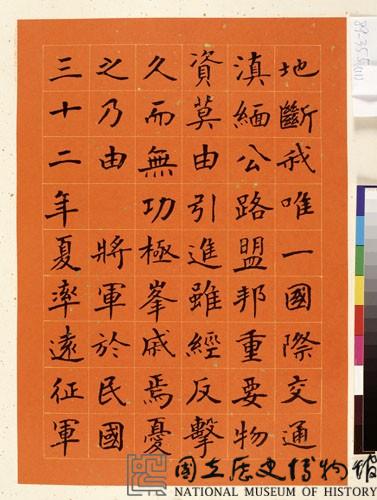 地斷我唯一國際交通
滇緬公路盟邦重要物
資莫由引進雖經反擊
久而無功極峯戚焉憂
之乃由　將軍於民國
三十二年夏率遠征軍
國立歷史博物館
NATIONAL MUSEUM OF HISTORY